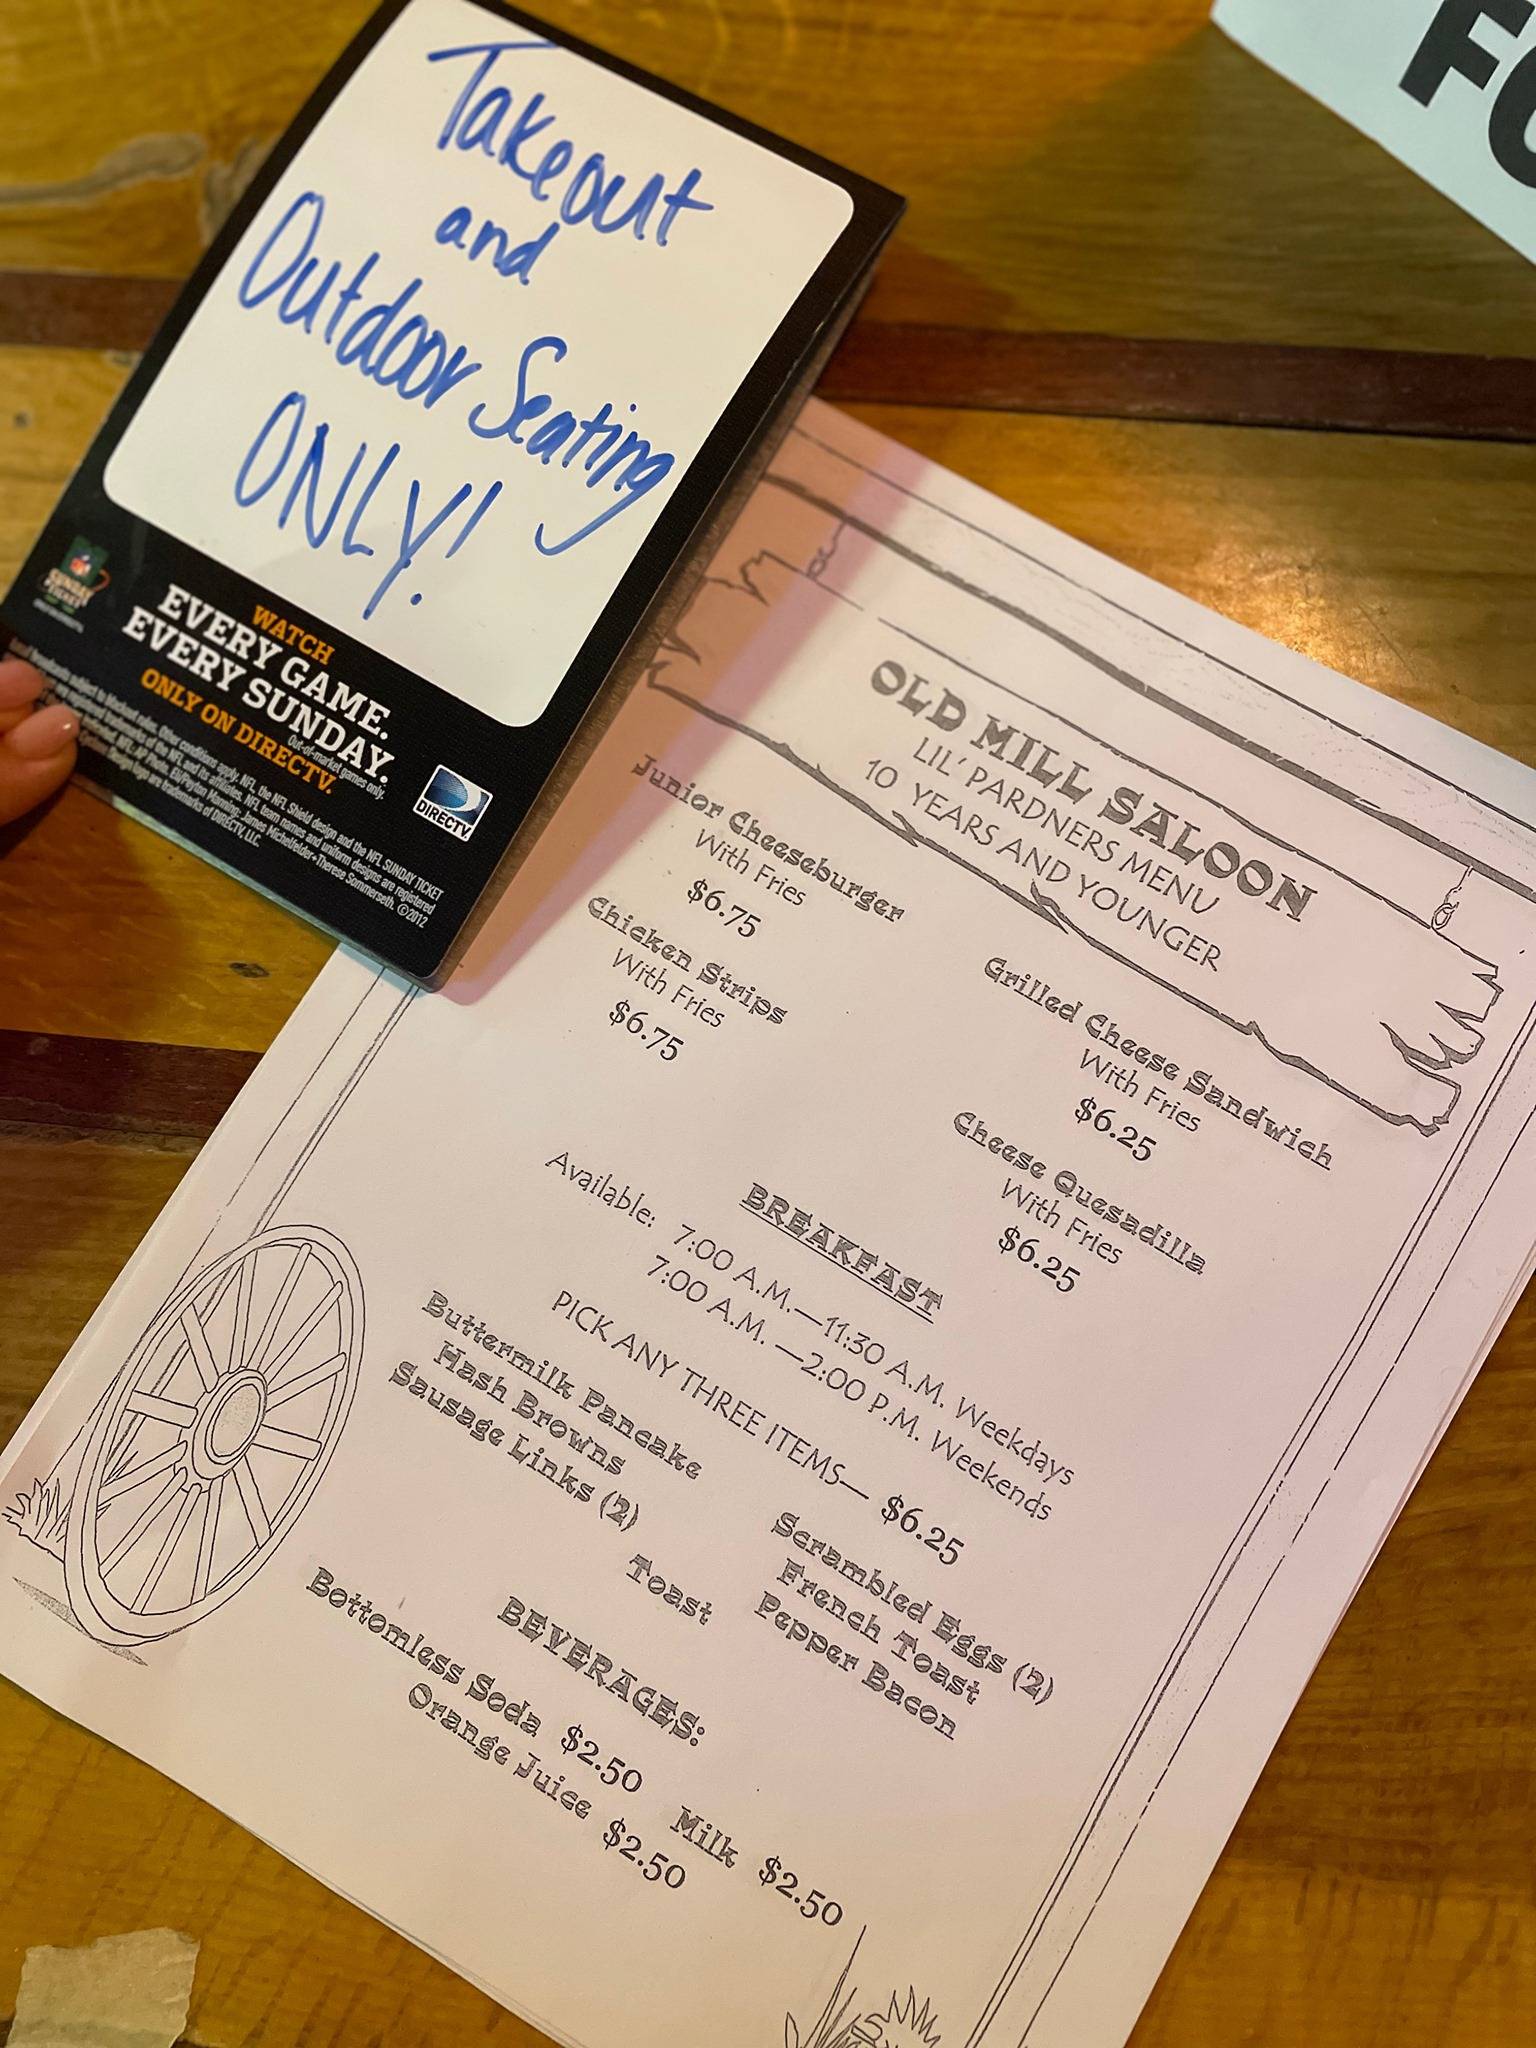 Takeout
and
Outdoor Seating
ONLY!
WATCH
EVERY GAME.
EVERY SUNDAY.
Out-of-market games only.
ONLY ON DIRECTV.
SUNDAY
TICKET
DIRECTV
Broadcasts subject to blackout rules. Other conditions apply. NFL, the NFL Shield design and the NFL SUNDAY TICKET
trademarks of the NFL and its affiliates. NFL team names and uniform designs are registered
are trademarks of DIRECTV, LLC.
©2012
FO
OLD MILL SALOON
LIL' PARDNERS MENU
10 YEARS AND YOUNGER
Junior Cheeseburger
With Fries
$6.75
Chicken Strips
With Fries
$6.75
Grilled Cheese Sandwich
With Fries
$6.25
Cheese Quesadilla
With Fries
$6.25
BREAKFAST
Available: 7:00 A.M.—11:30 A.M. Weekdays
7:00 A.M. —2:00 P.M. Weekends
PICK ANY THREE ITEMS— $6.25
Buttermilk Pancake
Hash Browns
Sausage Links (2)
Scrambled Eggs (2)
French Toast
Pepper Bacon
Toast
BEVERAGES:
Bottomless Soda $2.50 Milk $2.50
Orange Juice $2.50